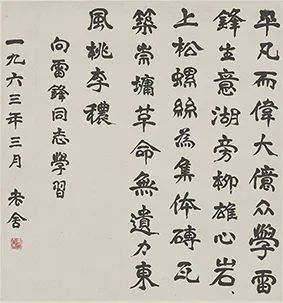 平凡而偉大億众學雷
鋒生意湖旁柳雄心岩
上松螺絲為集体磚瓦
築崇墉革命無遺力東
風桃李穠
向雷鋒同志學習
一九六三年三月 老舍